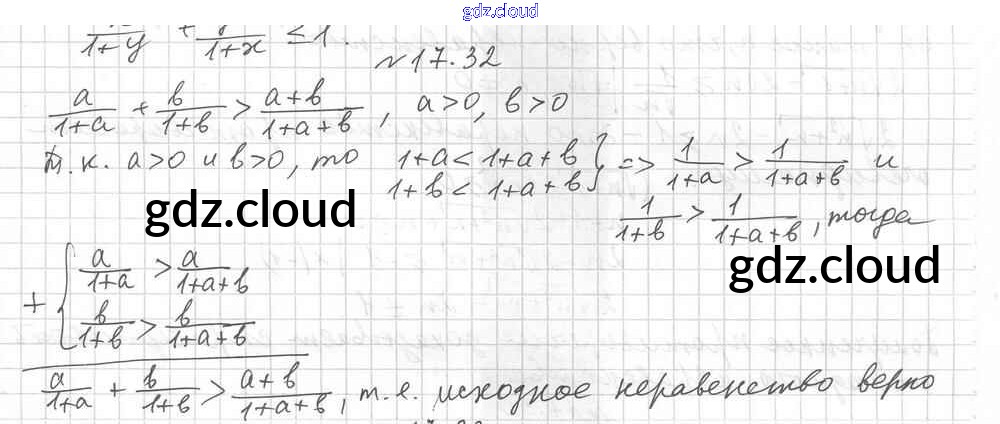 gdz.cloud
/(1+y) + /(1+x) ≤ 1.
№17.32
a/(1+a) + b/(1+b) > (a+b)/(1+a+b), a>0, b>0
Т.к. a>0 и b>0, то 1+a < 1+a+b } => 1/(1+a) > 1/(1+a+b) и
1+b < 1+a+b } 1/(1+b) > 1/(1+a+b), тогда
gdz.cloud
gdz.cloud
+ { a/(1+a) > a/(1+a+b)
b/(1+b) > b/(1+a+b)
a/(1+a) + b/(1+b) > (a+b)/(1+a+b), т.е. исходное неравенство верно